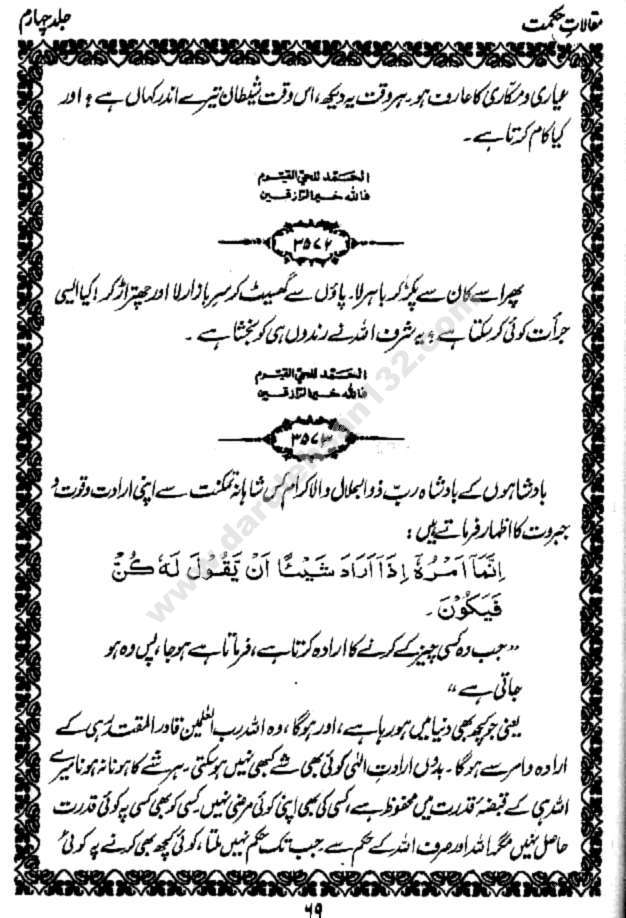 مقالاتِ حکمت
جلد چہارم
عیاری و مکّاری کا عارف ہو۔ ہر وقت یہ دیکھ، اس وقت شیطان تیرے اندر کہاں ہے؟ اور
کیا کام کرتا ہے۔
الحَمد للحيّ القيّوم
فاللہ خیر الرّازقین
۳۵۷۲
پھر اسے کان سے پکڑ کر باہر لا۔ پاؤں سے گھسیٹ کر سرِ بازار لا اور چھترا ڑ کر! کیا ایسی
جرأت کوئی کر سکتا ہے؟ یہ شرف اللہ نے رندوں ہی کو بخشا ہے۔
الحَمد للحيّ القيّوم
فاللہ خیر الرّازقین
۳۵۷۳
بادشاہوں کے بادشاہ ربّ ذوالجلال والاکرام کس شاہانہ تمکنت سے اپنی ارادت و قوت و
جبروت کا اظہار فرماتے ہیں:
اِنَّمَآ اَمْرُهٗٓ اِذَآ اَرَادَ شَيْـًٔا اَنْ يَّقُوْلَ لَهٗ كُنْ
فَيَكُوْنُ۔
”جب وہ کسی چیز کے کرنے کا ارادہ کرتا ہے، فرماتا ہے ہو جا، پس وہ ہو
جاتی ہے“
یعنی جو کچھ بھی دنیا میں ہو رہا ہے، اور ہوگا، وہ اللہ رب العٰلمین قادر المقتدر ہی کے
ارادہ و امر سے ہوگا۔ بدُوں ارادتِ الٰہی کوئی بھی شے کبھی نہیں ہو سکتی۔ ہر شئے کا ہونا نہ ہونا میرے
اللہ ہی کے قبضۂ قدرت میں محفوظ ہے، کسی کی بھی اپنی کوئی مرضی نہیں۔ کسی کو بھی کسی پر کوئی قدرت
حاصل نہیں مگر اللہ اور صرف اللہ کے حکم سے۔ جب تک حکم نہیں ملتا، کوئی کچھ بھی کرنے پہ کوئی
۶۹